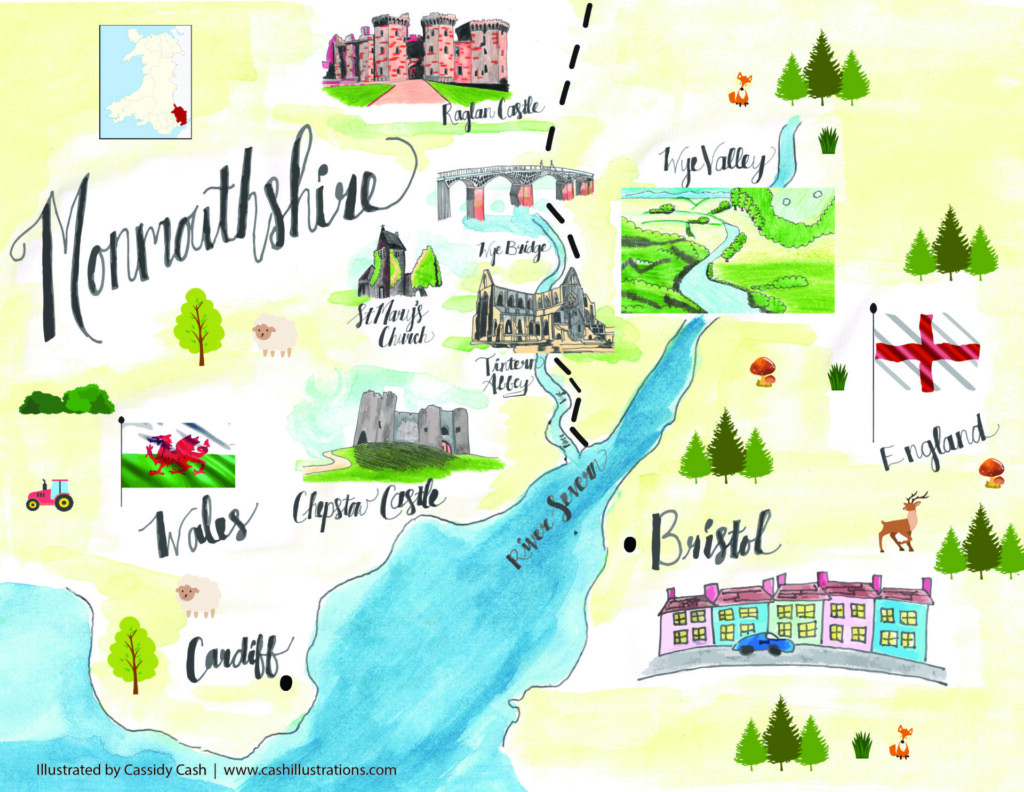 Raglan Castle
Monmouthshire
Wye Valley
Wye Bridge
St Mary's
Church
Tintern
Abbey
England
Chepstow Castle
Wales
River Severn
Bristol
Cardiff
Illustrated by Cassidy Cash | www.cashillustrations.com